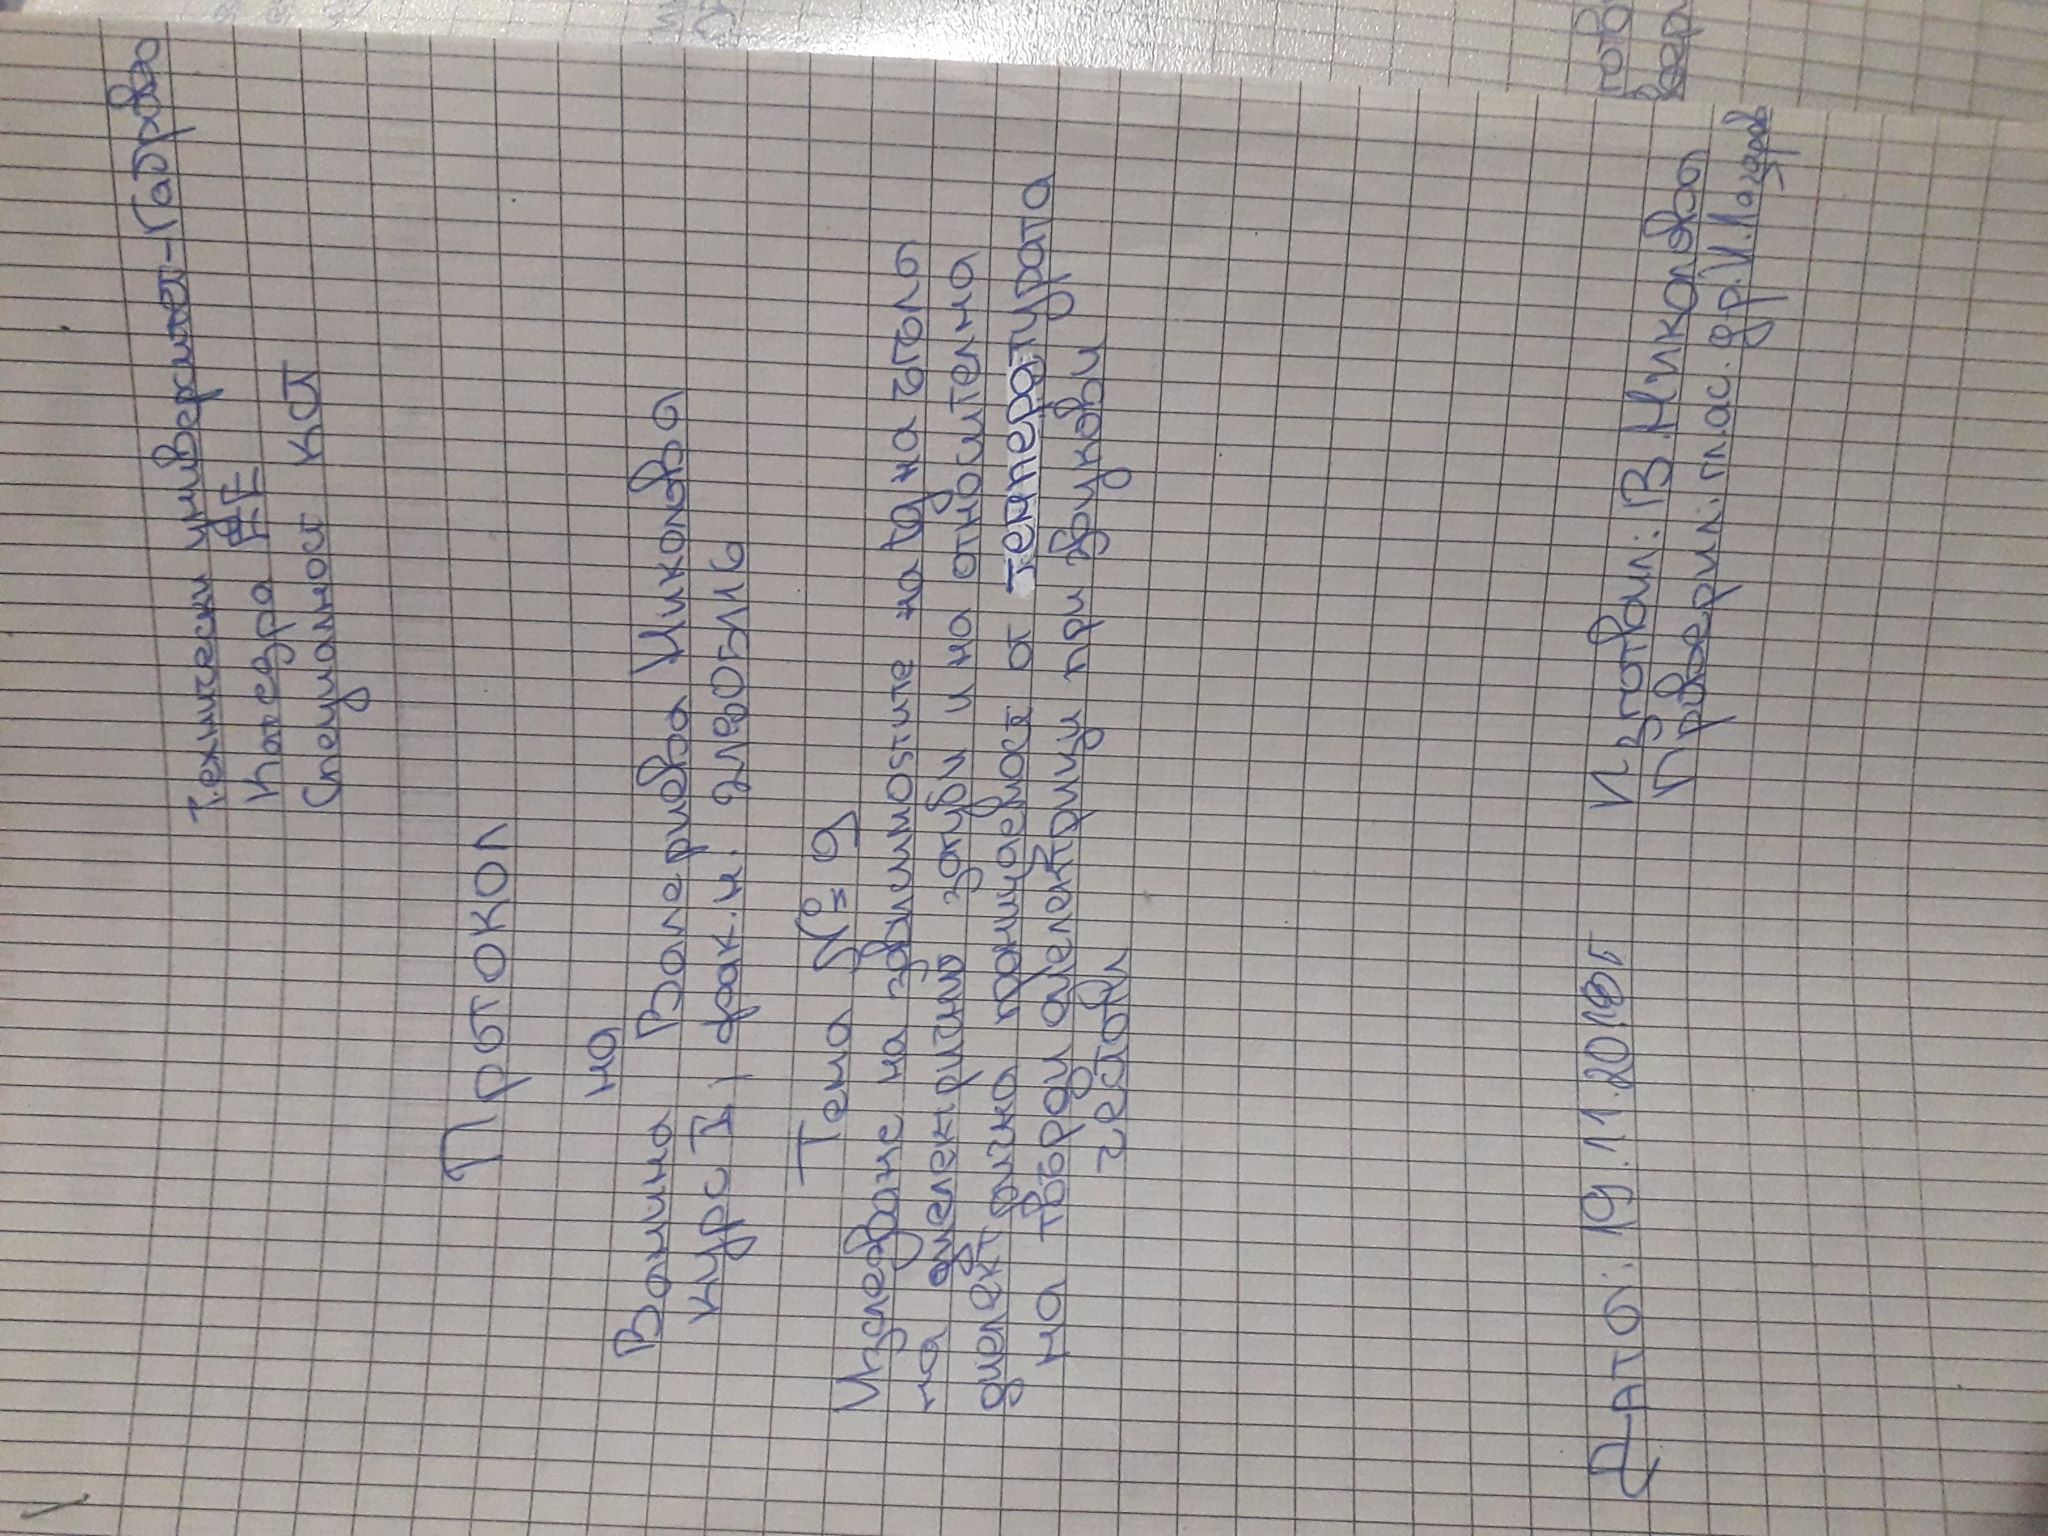 Технически университет-Габрово
Катедра ЕЕ
Специалност КСТ
Протокол
на
Ванина Валериева Николова
курс I, фак.н.
Тема № 9
Изследване на зависимостите на tg на ъгъла
на диелектрични загуби и на относителна
диелектрична проницаемост от температурата
на твърди диелектрици при звукови
честоти
Дата: 19.11.2018г
Изготвил: В.Николова
Проверил: гл.ас. др. И. Лазаров